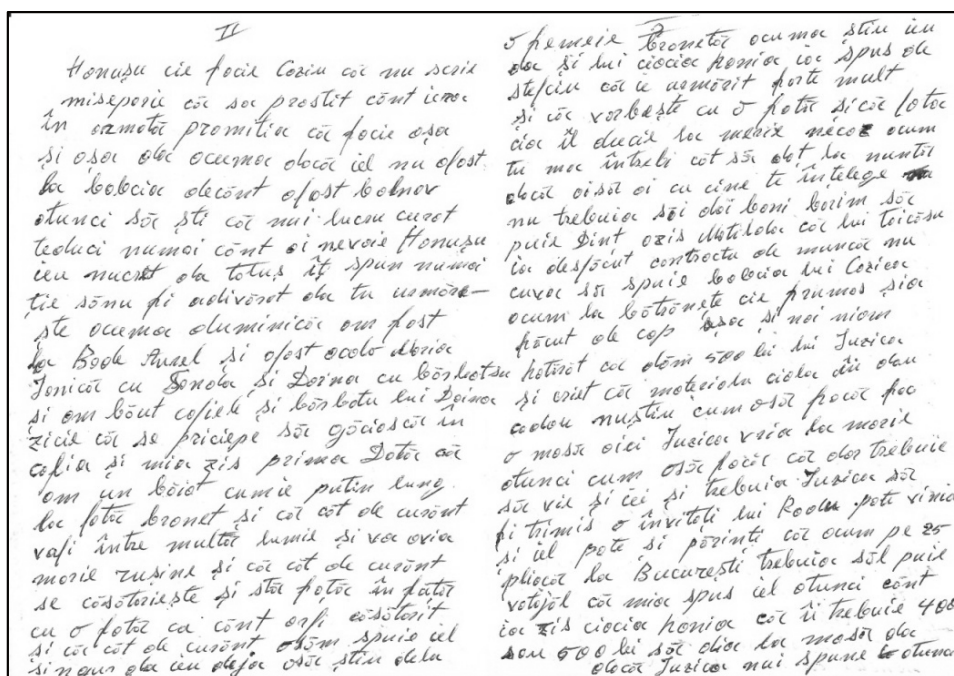 II
Honușu cie focie Coziu că nu scrie
miseporie că sa prostit cînt iera
în armată promitia că focie așa
și așa da acuma dacă iel nu afost
la babcia decînt afost bolnav
atunci să ști că nui lucru curat
teduci numai cînt ai nevoie Honușu
ieu nucret da totuș îț spun numai
ție sănu fi adivărat da tu urmăre-
ște acuma duminică am fost
la Bode Aurel și afost acolo Maria
Ionică cu Sanda și Doina cu bărbatsu
și am băut cafiele și bărbatu lui Doina
zicie că se priciepe să găciască în
cafia și mia zis prima Dată că
am un băiat cumie puțin lung
la fată bronet și că cît de curînt
vafi între multă lumie și va avia
marie rușine și că cît de curînt
se căsătoriește și stă fată în fată
cu o fată ca cînt arfi căsătorit
și că cît de curînt osăm spuie iel
singur da ieu deja osă știu dela
o femeie bronetă acuma știu ieu
da și lui ciocia honia ia spus de
ștefciu că ie urmărit forte mult
și că vorbește cu o fată șică fata
cia îl ducie la marie necaz acum
tu ma întrebi cît să dat la nuntă
dacă aisă ai cu cine te înțelege
nu trebuia săi dai bani barim să
puie Dint ozis Matilda că lui taicosu
ia desfăcut contractu de muncă nu
cuva să spuie babcia lui Cozica
acum la bătrînețe cie frumos șia
făcut de cap așa și noi niam
hotărît ca dăm 500 lei lui Iuzica
și criet că materialu ciala îi dau
cadou nuștiu cum osă facă fac
o masă aici Iuzica vria la marie
atunci cum osă facă că dor trebuie
să vie și iei și trebuia Iuzica să
fi trimis o invitați lui Radu pate vinia
și iel pate și părinți că acum pe 25
pliacă la București trebuia săl puie
votijăl că mia spus iel atunci cînt
ia zis ciocia honia că îi trebuie 400
sau 500 lei să dia la masă da
dacă Iuzica nui spune atunci